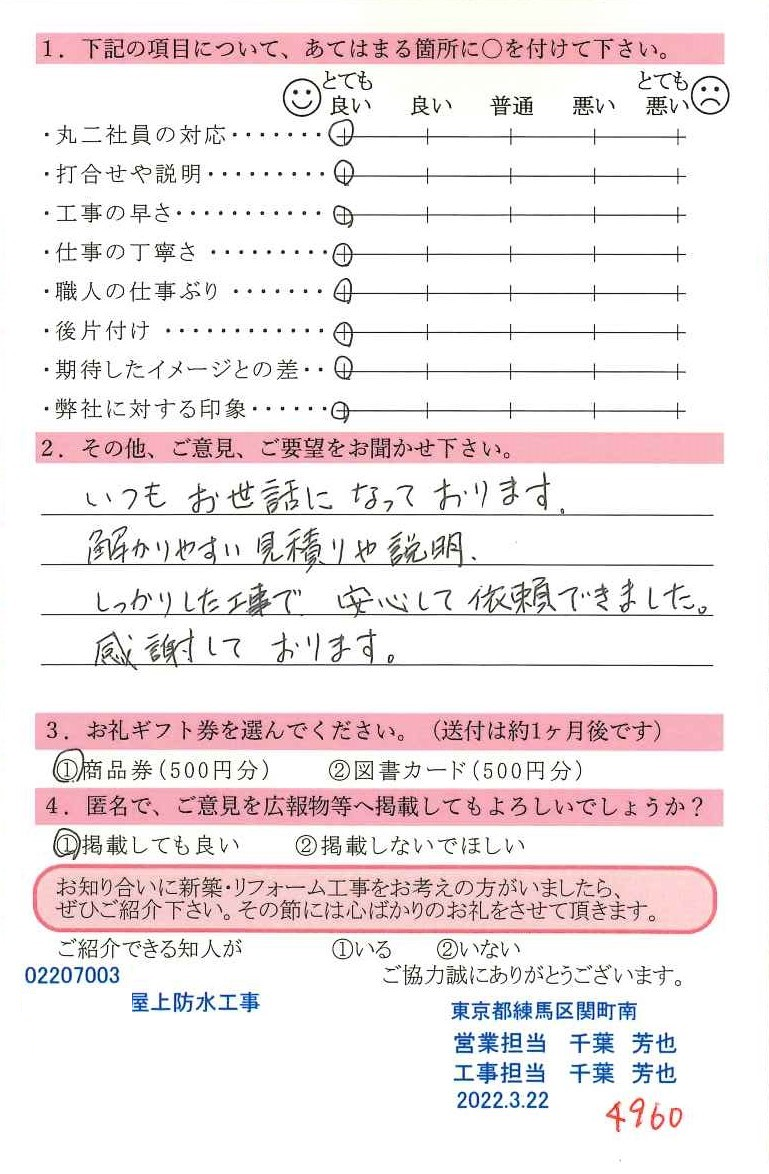 1. 下記の項目について、あてはまる箇所に○を付けて下さい。
とても良い 良い 普通 悪い とても悪い
・丸二社員の対応・・・・・・・
・打合せや説明・・・・・・・・・
・工事の早さ・・・・・・・・・・・
・仕事の丁寧さ・・・・・・・・・
・職人の仕事ぶり・・・・・・・
・後片付け・・・・・・・・・・・・
・期待したイメージとの差・・
・弊社に対する印象・・・・・・
2. その他、ご意見、ご要望をお聞かせ下さい。
いつも お世話に なって おります。
解かりやすい見積りや説明、
しっかりした工事で 安心して依頼できました。
感謝して おります。
3. お礼ギフト券を選んでください。(送付は約1ヶ月後です)
①商品券(500円分) ②図書カード(500円分)
4. 匿名で、ご意見を広報物等へ掲載してもよろしいでしょうか?
①掲載しても良い ②掲載しないでほしい
お知り合いに新築・リフォーム工事をお考えの方がいましたら、
ぜひご紹介下さい。その節には心ばかりのお礼をさせて頂きます。
ご紹介できる知人が ①いる ②いない
02207003 ご協力誠にありがとうございます。
屋上防水工事 東京都練馬区関町南
営業担当 千葉 芳也
工事担当 千葉 芳也
2022.3.22
4960